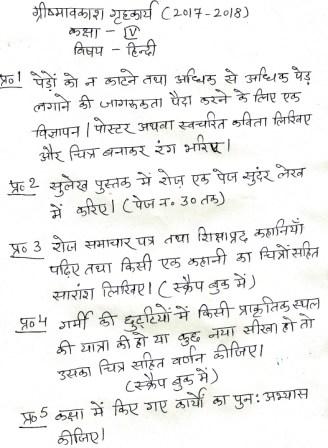 ग्रीष्मावकाश गृहकार्य (2017-2018)
कक्षा - IV
विषय - हिन्दी
प्र०1 पेड़ों को न काटने तथा अधिक से अधिक पेड़
लगाने की जागरुकता पैदा करने के लिए एक
विज्ञापन / पोस्टर अथवा स्वचरित कविता लिखिए
और चित्र बनाकर रंग भरिए।
प्र०2 सुलेख पुस्तक में रोज़ एक पेज सुंदर लेख
में करिए। (पेज न० 30 तक)
प्र० 3 रोज समाचार पत्र तथा शिक्षाप्रद कहानियाँ
पढ़िए तथा किसी एक कहानी का चित्रों सहित
सारांश लिखिए। (स्क्रैप बुक में)
प्र०4 गर्मी की छुट्टियों में किसी प्राकृतिक स्थल
की यात्रा की हो या कुछ नया सीखा हो तो
उसका चित्र सहित वर्णन कीजिए।
(स्क्रैप बुक में)
प्र० 5 कक्षा में किए गए कार्यों का पुन: अभ्यास
कीजिए।